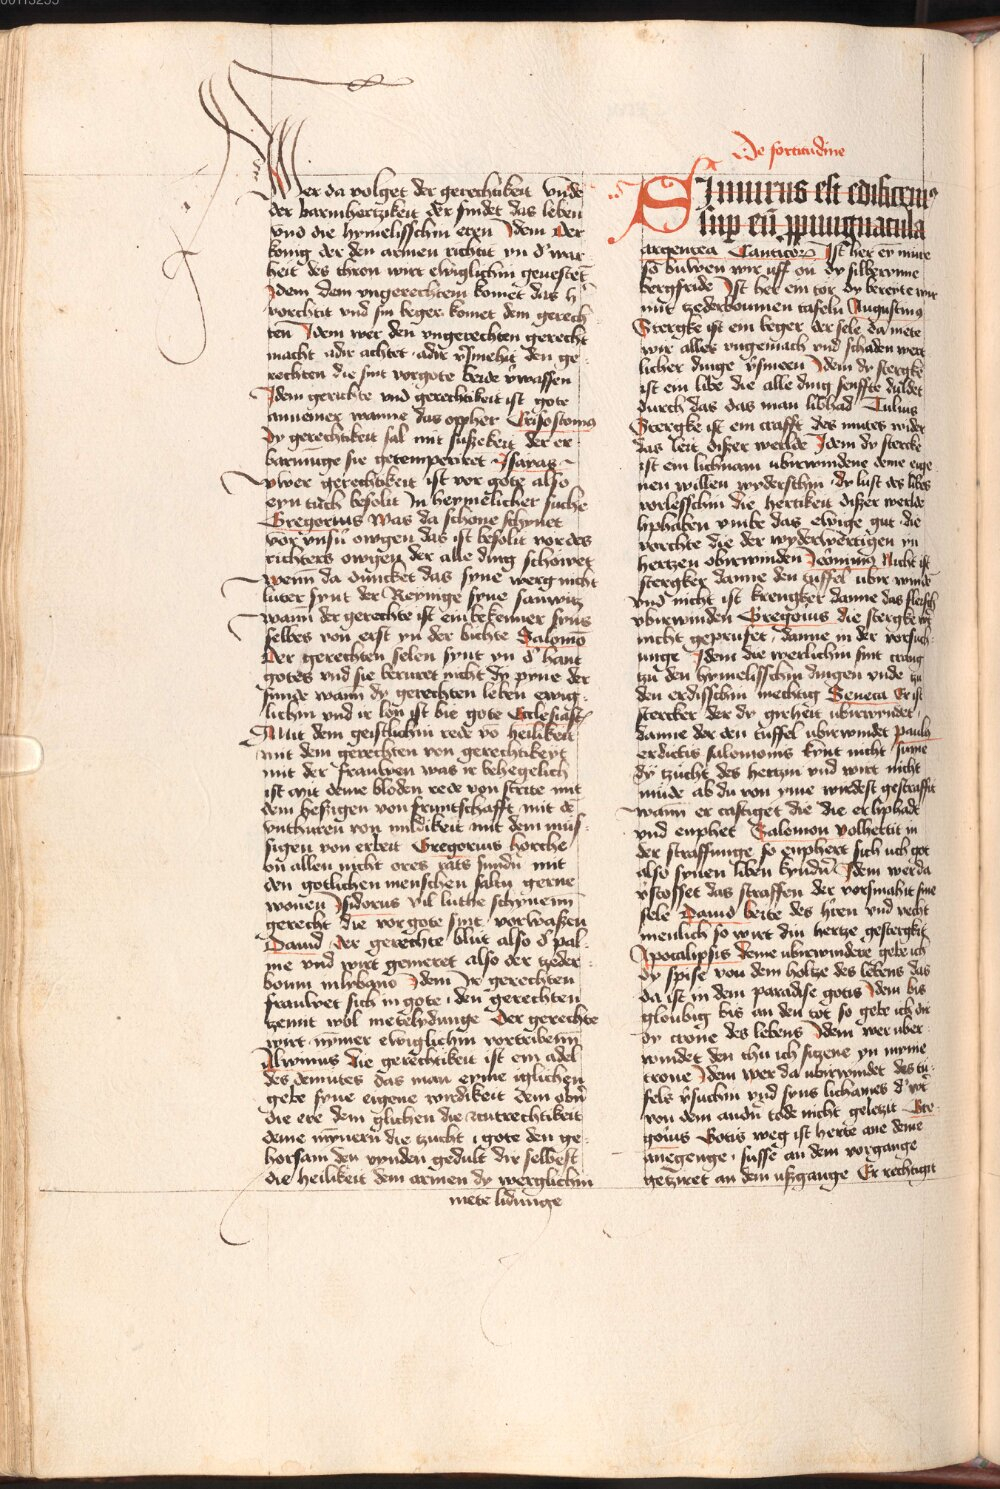 Wer da volget der gerechtikeit vnde
der barmhertzikeit der findet das leben
vnd die hymelisschin eren Idem Der
konig der den armen richtit yn d' war
heit des thron wirt ewiglichin geuestet
Idem dem vngerechtem komet das h'
vorchtit vnd sin beger komet dem gerech
ten Idem wer den vngerechten gerecht
macht adir achtet adir v'smehit den ge
rechten die sint vor gote beide v'wassen
Idem gerichte vnd gerechtikeit ist gote
annemer wanne das oppher Crisostomus
Dy gerechtikeit sal mit sußekeit der er
barmunge sie getemperiret Isaias
vwer gerechtikeit ist vor gote also
eyn tuch besolit In heymelicher suche
Gregorius Was da schone schynet
vor vnsn owgen das ist besolit vor des
richters owgen der alle ding schowet
wenn da duncket das syne werg nicht
luter synt der Reynige syne
wann der gerechte ist ein bekenner syns
selbes von erst yn der bichte Salomon
Der gerechten selen synt yn d' hant
gotes vnd sie beruret nicht dy pyne der
sunde wann dy gerechten leben ewig
lichin vnd ir lon ist bie gote Ecclesiast
Mit dem geistlichin rede vo heilikeit
mit dem gerechten von gerechtikeyt
mit der frauwen was ir behegelich
ist mit deme bloden rede von strite mit
dem heßigen von fruntschafft mit de
vnthuren von mildikeit mit dem mus
sigen von erbeit Gregorius horche
on allen nicht ores rats sundn mit
den gotlichen menschen saltu gerne
wonen Isidorus vil luthe schynenn
gerecht die vor gote sint vorwaßen
Dauid Der gerechte blut also d' pal
me vnd wirt gemeret also der zeder
boum in lybano Idem Ir gerechten
frauwet sich in gote den gerechten
zemit wol metelydunge Der gerechte
wirt nymer ewiglichin vortribenn
Alwinus Die gerechtikeit ist ein adel
des demutes das man eyme iglichen
gebe syne eigene wirdikeit dem obn
die ere dem glichen die eintrechtikeit
deme mynern die tzucht gote den ge
horsam den vynden gedult dir selbest
die heilikeit dem armen dy werglichin
mete lidunge
De fortitudine
SI murus est edificem'
sup eu ppungnacula
argentea Canticor Ist her ey mure
so buwen wir uff on dy silberynne
bergfride Ist her ein tor dy bereite wir
mit zederboumen tafeln Augustinus
Stergke ist ein beger der sele da mete
wir alles vngemach vnd schaden wert
licher dinge v'smeen Idem dy stergke
ist ein libe die alle ding senffte duldet
durch das das man libhad Tulius
Stergke ist ein crafft des mutes wider
das leit dißer werlde Idem dy stercke
ist ein lichnam ubirwindene deme eige
nen willen wyderschin dy lust des libes
vorlesschin die hertikeit dißer werlde
liphaben vmbe das ewige gut die
vorchte die der wyderwertigen yn
hertzen obirwinden Jeronimus Nicht ist
stergker danne den tuffel ubir winde
vnd nicht ist krengker danne das fleisch
vbirwinden Gregorius die stergke wir
nicht geprufet danne in der vorsuch
unge Idem die werlichin sint crang
tzu den hymelisschin dingen vnde zu
den erdisschin mechtig Seneca Er ist
stercker der dy girheit ubirwyndet
danne der den tuffel ubirwindet paulus
erdictis salomonis kynt nicht sume
dy tzucht des hertzin vnd wirt nicht
mude ab du von yme wirdest gestraffit
wann er castiget die die er liphadt
vnd enphet Salomon volhettit in
der straffunge so enphert sich uch got
also synen liben kyndn Idem wer da
v'stosset das straffen der vorsmahit sine
sele Dauid beite des h'ren vnd vecht
menlich so wirt din hertze gestergkit
Apocalipsis deme ubirwindere gebe ich
dy spise von dem holtze des lebens das
da ist in dem paradise gotis Idem bis
gloubig bis an den tot so gebe ich dir
dy crone des lebens Idem wer uber
windet den thu ich sitzene yn myme
trone Idem wer da ubirwindet des tu
fels v'suchin vnd syns lichames d' wirt
von dem andn tode nicht geletzit Gre
gorius Gotis weg ist herte ane deme
anegenge susse an dem vorgange
getzyret an dem ußgange Er rechtigit